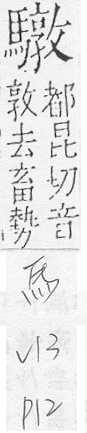 驐
都昆切音
敦去畜勢
馬
V13
P12